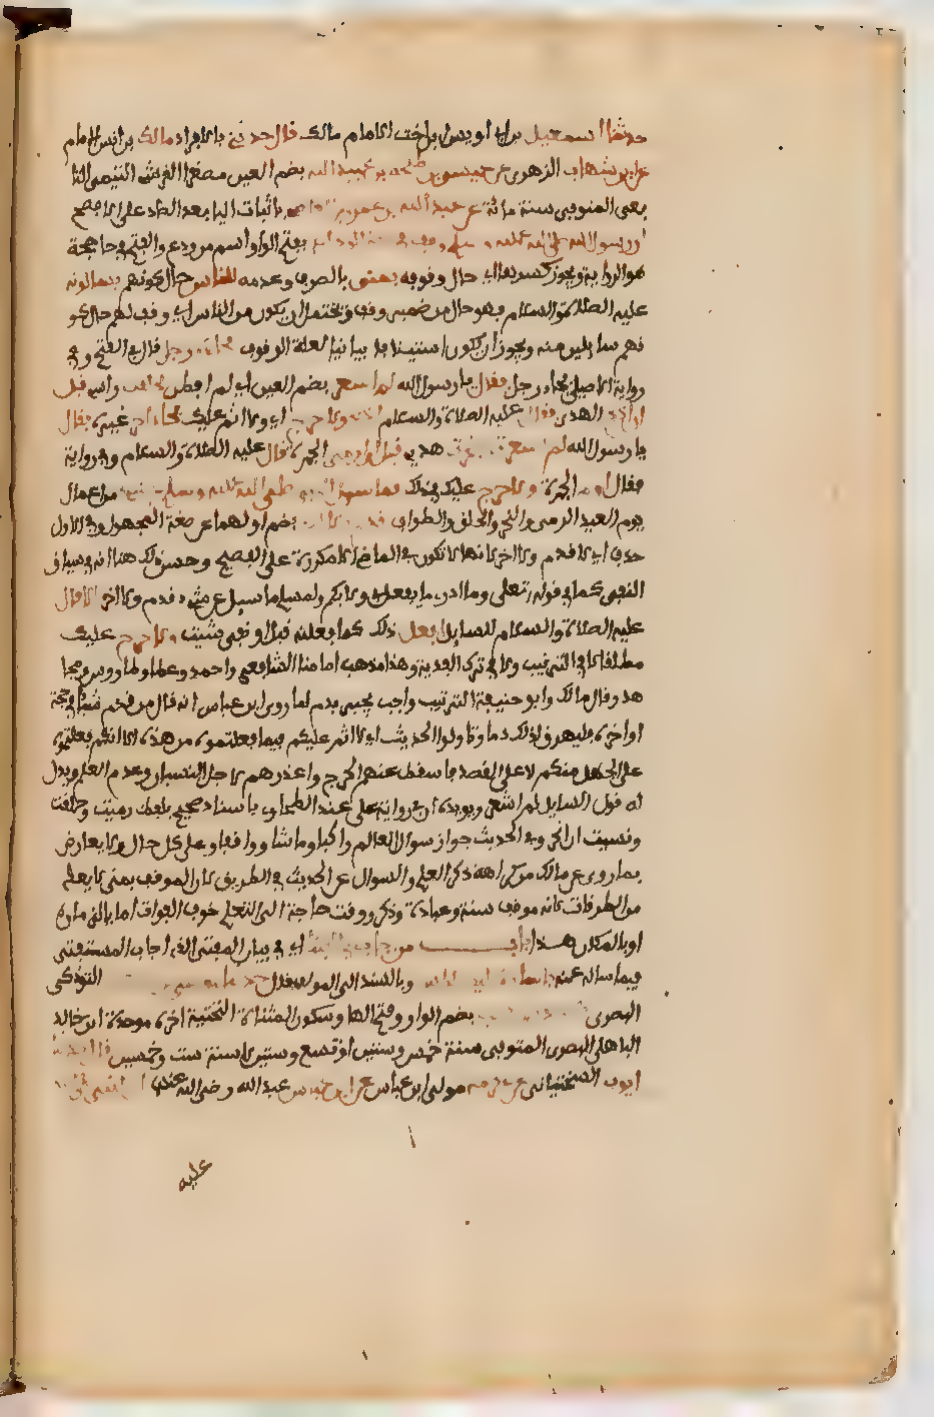 حدثنا اسمعيل بن ابي اويس ابن اخت الامام مالك قال حدثني بالافراد مالك بن انس الامام
عن ابن شهاب الزهري عن عيسى بن طلحة بن عبيد الله بضم العين مصغرا القرشي التيمي التا
بعي المتوفى سنة مائة عن عبد الله بن عمرو باثبات اليا بعد الصاد على الافصح
ان رسول الله صلى الله عليه وسلم وقف في حجة الوداع بفتح الواو اسم من ودع والفتح في حا حجة
هو الرواية ويجوز كسرها اي حال وقوفه بمنى بالصرف وعدمه للناس حال كونهم يسالونه
عليه الصلاة والسلام فهو حال من ضمير وقف ويحتمل ان يكون من الناس اي وقف لهم حال كو
نهم سايلين منه ويجوز ان يكون استينافا بيانيا لعلة الوقوف فجاءه رجل قال في الفتح وفي
رواية الاصيلي فجاء رجل فقال يا رسول الله لم اشعر بضم العين اي لم افطن فحلقت راسي قبل
ان اذبح الهدي فقال عليه الصلاة والسلام اذبح ولا حرج اي ولا اثم عليك فجاء اخر غيره فقال
يا رسول الله لم اشعر فنحرت هديي قبل ان ارمي الجمرة قال عليه الصلاة والسلام وفي رواية
فقال ارم الجمرة ولا حرج عليك في ذلك فما سئل النبي صلى الله عليه وسلم عن شيء من اعمال
يوم العيد الرمي والنحر والحلق والطواف قدم ولا اخر بضم اولهما على صيغة المجهول وفي الاول
حذف اي لا قدم ولا اخر لانها لا تكون في الماضي الا مكررة على الفصيح وحسن ذلك هنا انه في سياق
النفي كما في قوله تعلى وما ادري ما يفعل بي ولا بكم ولمسلم ما سيل عن شيء قدم ولا اخر الا قال
عليه الصلاة والسلام للسايل افعل ذلك كما فعلته قبل او متى شيت ولا حرج عليك
مطلقا لا في الترتيب ولا في ترك الفدية وهذا مذهب امامنا الشافعي واحمد وعطاء وطاووس ومجا
هد وقال مالك وابو حنيفة الترتيب واجب يجبر بدم لما روى ابن عباس انه قال من قدم شيئا في حجة
او اخره فليهرق لذلك دما وتاولوا الحديث اي لا اثم عليكم فيما فعلتموه من هذا لانكم فعلتموه
على الجهل منكم لا على القصد فاسقط عنهم الحرج واعذرهم لاجل النسيان وعدم العلم ويدل
له قول السايل لم اشعر ويويده ان في رواية علي عند الطحاوي باسناد صحيح بلفظ رميت وحلقت
ونسيت ان انحر وفي الحديث جواز سوال العالم راكبا وماشيا وواقفا وعلى كل حال ولا يعارض
بما روي عن مالك من كراهة ذكر العلم والسوال عن الحديث في الطريق لان الموقف بمنى لا يعد
من الطرقات لانه موقف سنة وعبادة وذكر ووقت حاجة الى التعلم خوف الفوات اما بالزمان
او بالمكان هذا باب من اجاب الفتيا اي في بيان المفتي الذي اجاب المستفتي
فيما ساله عنه باشارة اليد او الراس وبالسند الى المولف قال حدثنا موسى بن التوذكي
البصري بضم الواو وفتح الها وسكون المثناة التحتية اخره موحدة ابن خالد
الباهلي البصري المتوفى سنة خمس وستين او تسع وستين لا سنة ست وخمسين قال حدثنا
ايوب السختياني عن عكرمة مولى ابن عباس عن ابن عباس عبد الله رضي الله عنهما
عليه